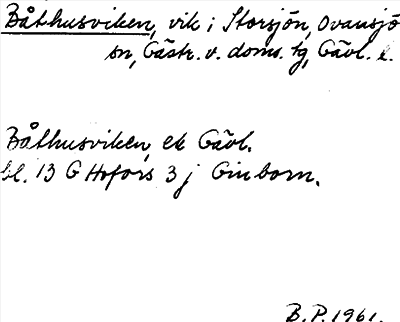 Båthusviken, vik i Storsjön, Ovansjö
sn, Gästr. v. doms. tg, Gävl. l.
Båthusviken, ek Gävl.
bl. 13 G Hofors 3 j Ginborn.
B.P. 1961.